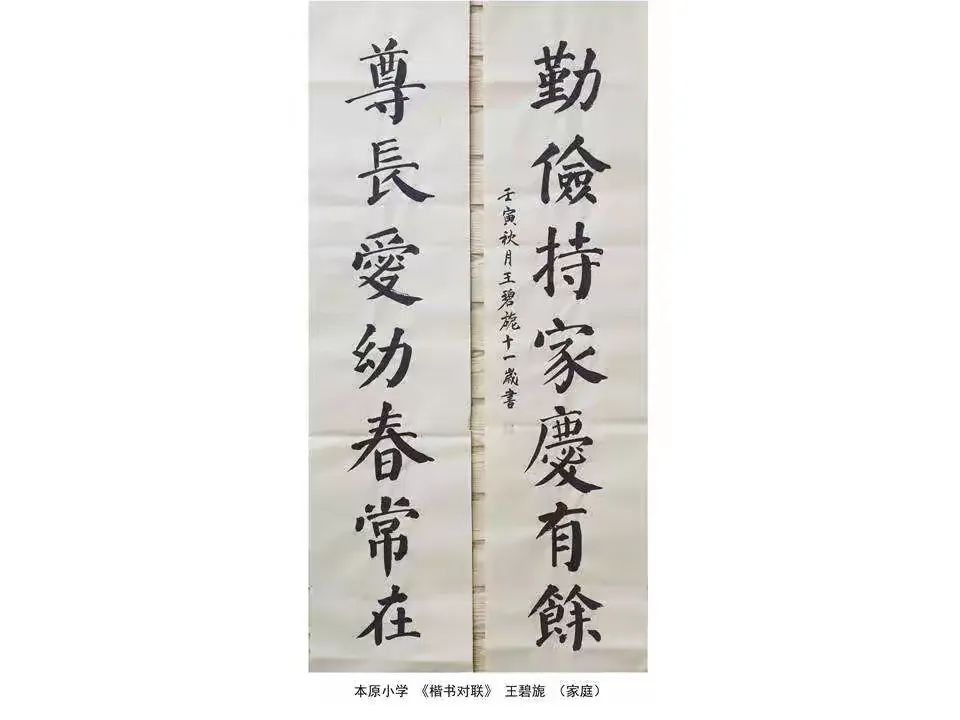 勤儉持家慶有餘
壬寅秋月王碧旎十一歲書
尊長愛幼春常在
本原小学 《楷书对联》 王碧旎 （家庭）